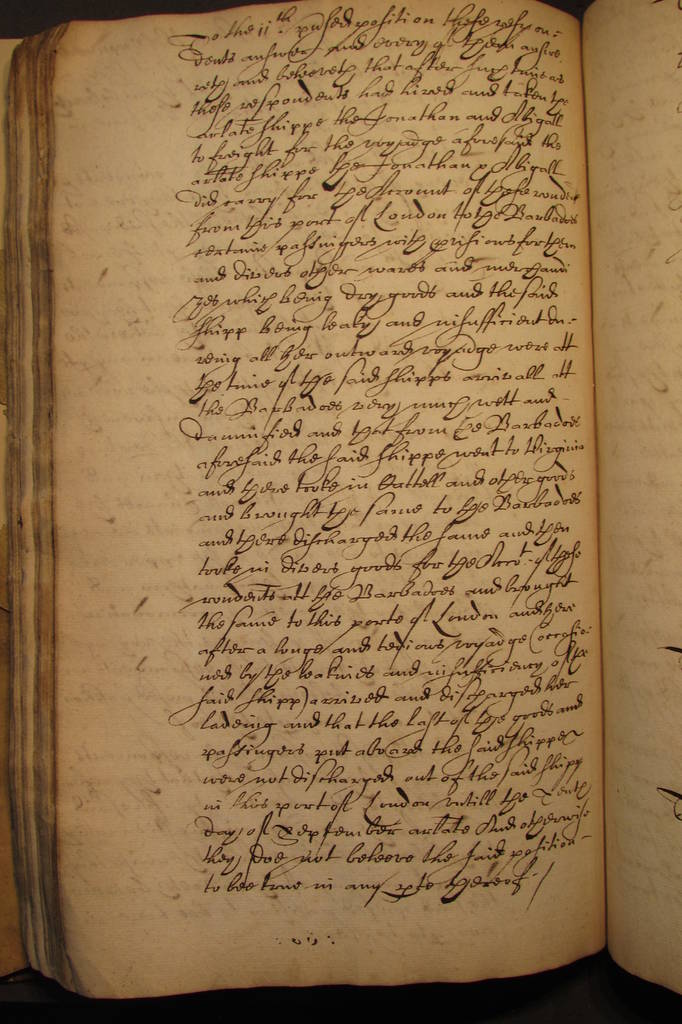 To the 11th pñsed position these respon:
dents answer and every of them answe
reth and beleeveth that after such time as
these respondents had hired and taken the
arlate shippe the Jonathan and Abigall
to freight for the voyadge aforesaid the
arlate shippe the Jonathan & Abigall
did carry for the Account of these rondents
from this port of London to the Barbados
certaine passingers with p'visions for them
and divers other wares and merchandi
zes which being dry goods and the said
shipp being leaky and insufficient du:
reing all her outward voyadge were att
the time of the said shipps arrivall att
the Barbadoes very much wett and
damnified and that from the Barbadoes
aforesaid the said shippe went to Virginia
and there tooke in Cattell and other goods
and brought the same to the Barbadoes
and there discharged the same and then
tooke in divers goods for the Accot. of these
rondents att the Barbadoes and brought
the same to this porte of London and here
after a longe and tedious voyadge (occasio:
ned by the leakines and insufficiency of the
said shipp) arrived and discharged her
ladeing and that the last of the goods and
passingers put aboard the said shippe
were not discharged out of the said shipp
in this port of London untill the Tenth
day of September arlate And otherwise
they doe not beleeve the said position
to bee true in any pte thereof /